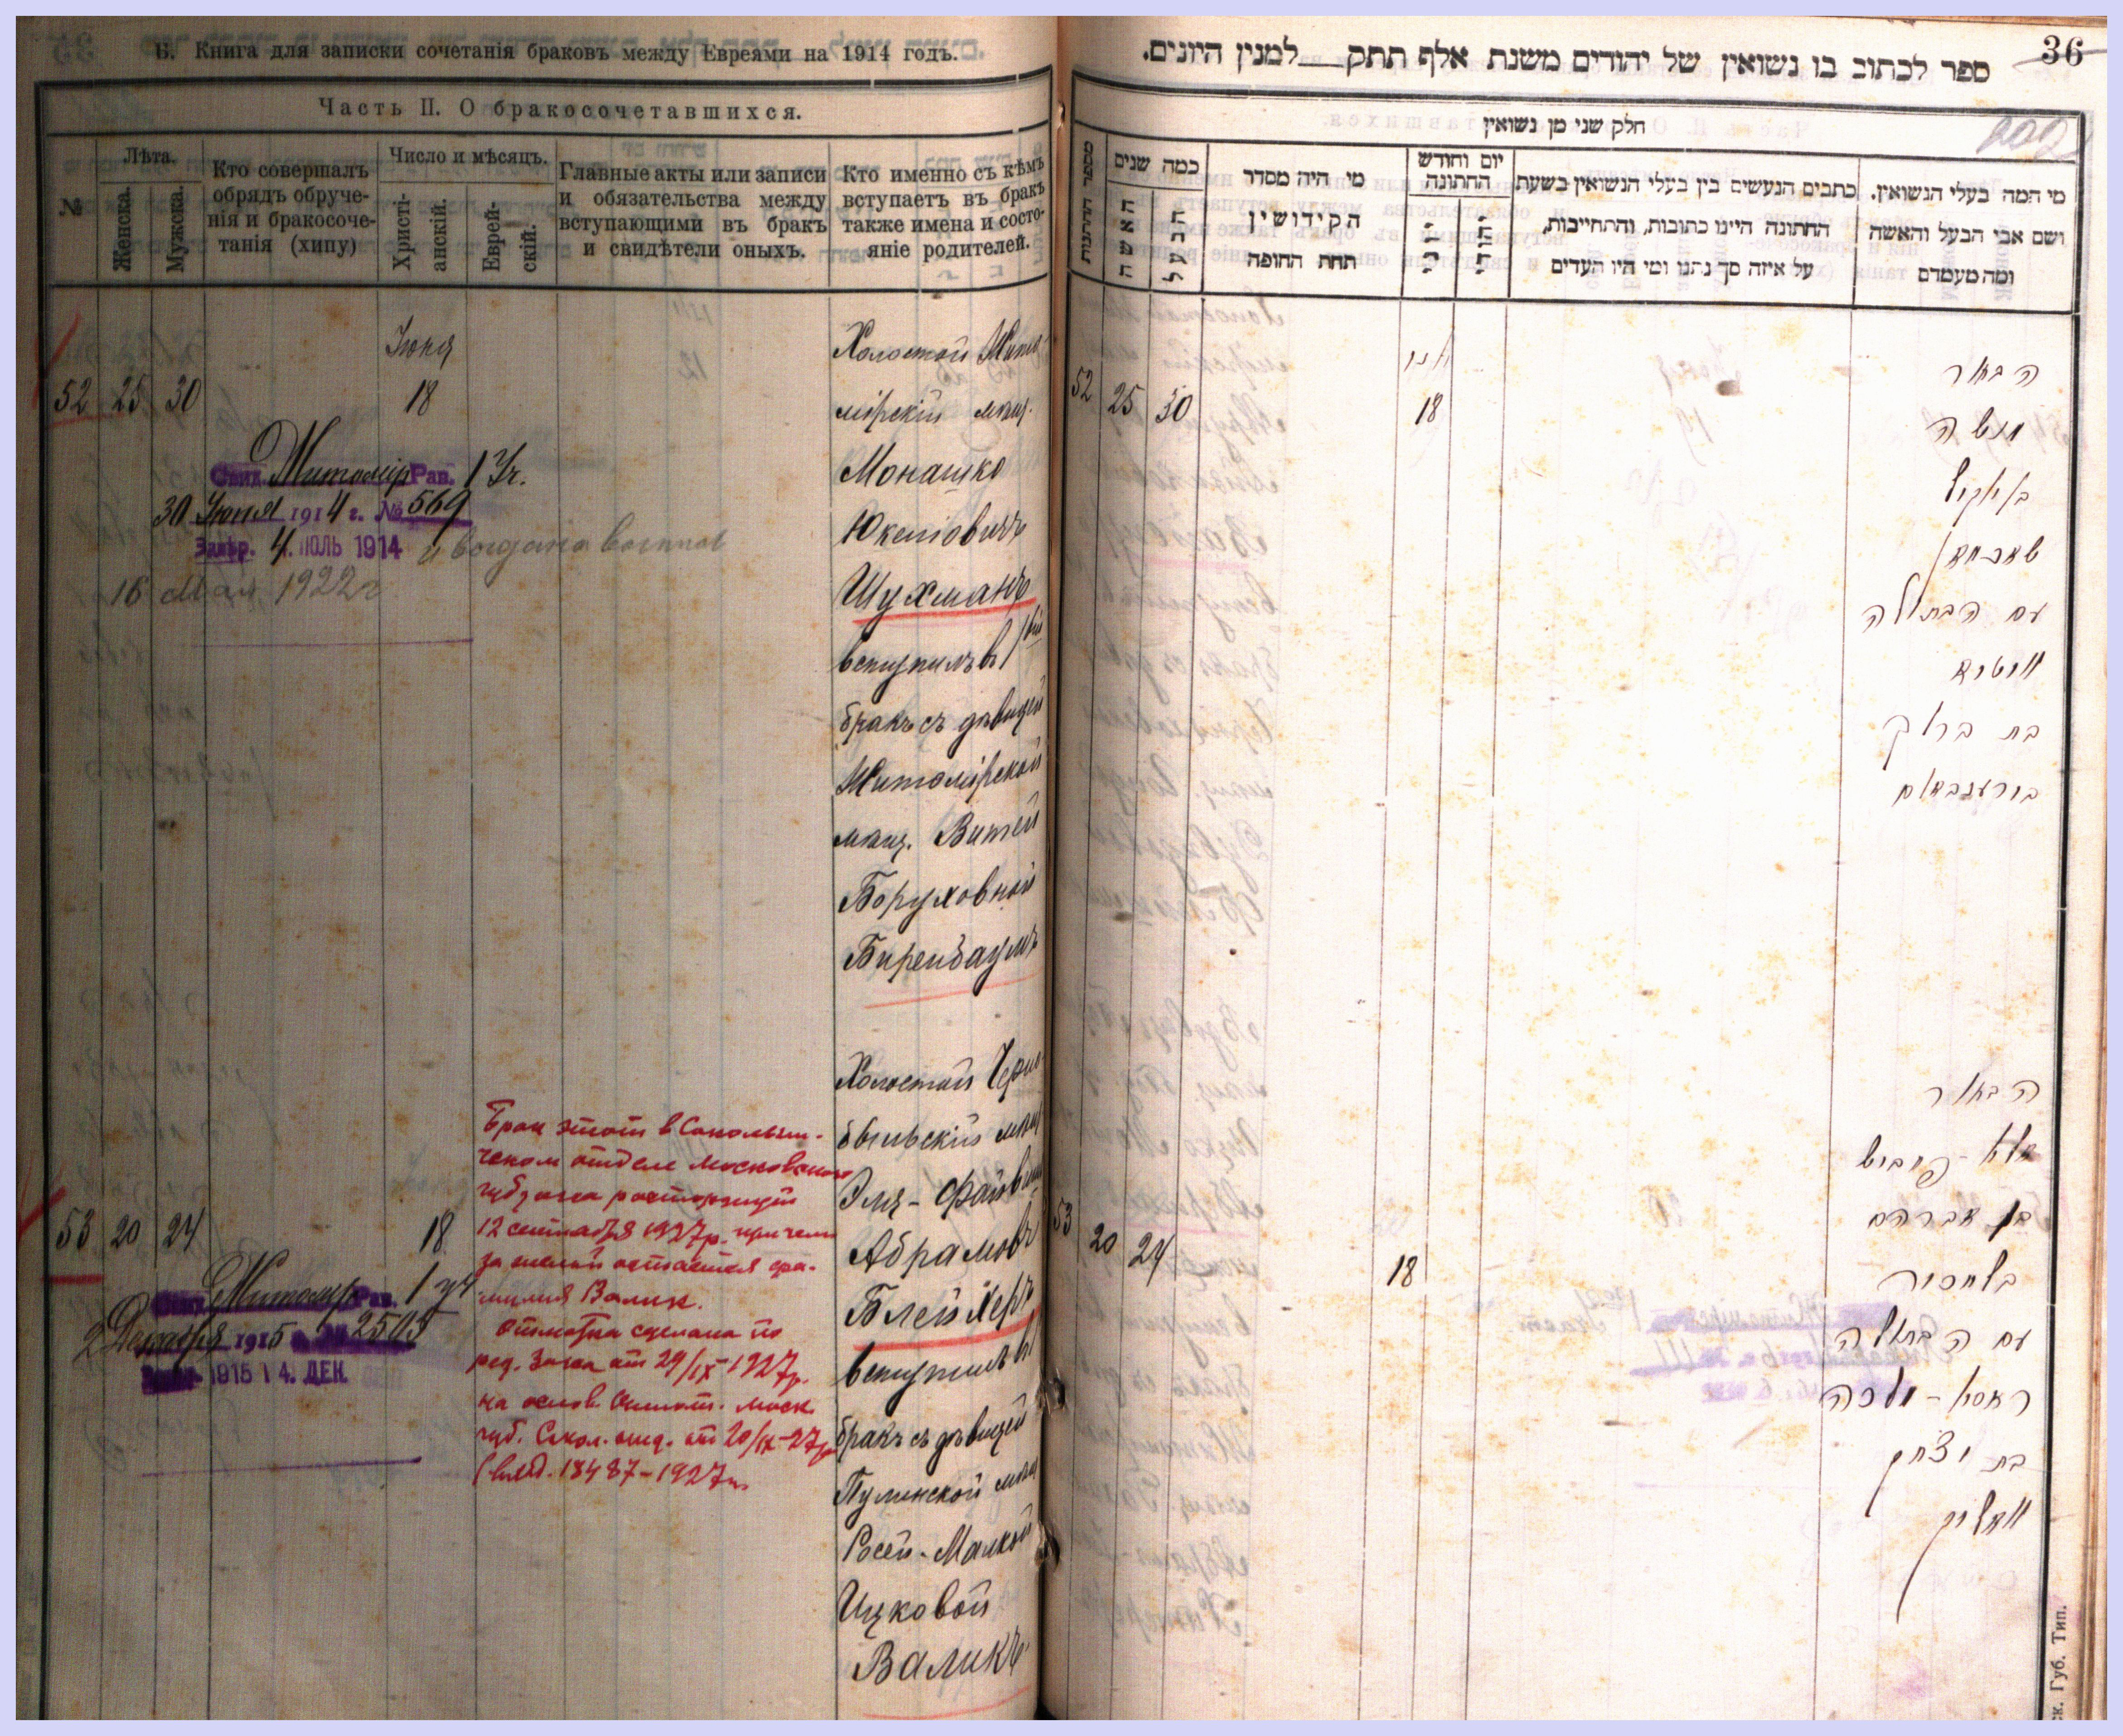 Б. Книга для записки сочетанія браковъ между Евреями на 1914 годъ.
Часть II. О бракосочетавшихся.
№
Лѣта.
Женска.
Мужска.
Кто совершалъ
обрядъ обруче-
нія и бракосоче-
танія (хипу)
Число и мѣсяцъ.
Христі-
анскій.
Еврей-
скій.
Главные акты или записи
и обязательства между
вступающими въ бракъ
и свидѣтели оныхъ.
Кто именно съ кѣмъ
вступаетъ въ бракъ
также имена и состо-
яніе родителей.
Іюня
52 25 30 18
Свид. Житомір Рав. 1 Уч.
30 Іюня 1914 г. № 569
Завѣр. 4. ІЮЛЬ 1914
16 Мая 1922 г
Холостой Жито
мірскій мѣщ.
Монашко
Юкелiовичъ
Шухманъ
вступилъ въ 1ый
бракъ съ дѣвицей
Житомірской
мѣщ. Витей
Боруховной
Биренбаумъ
53 20 24 18
Житомир Рав. 1 уч
2 Декабря 1915 г. № 2505
1915 14. ДЕК
Брак этот в Сокольни-
ческом отделе Московского
губзагса расторгнут
12 сентября 1927 р. причем
за женой остается фа-
милия Валик.
Отметка сделана по
рас. Загса от 29/IX-1927 р.
на основ. Моск.
губ. Сокол. отд. от 20/IX-27 р
18487-1927
Холостой Черно
быльскій мѣщ
Эля-Файвиш
Абрамовъ
Блейхеръ
вступилъ въ
бракъ съ дѣвицей
Пулинской мѣщ
Росей-Малкой
Ицковой
Валикъ
36
ספר לכתוב בו נשואין של יהודים משנת אלף תתק למנין היונים.
חלק שני מן נשואין
מספר החתונות
כמה שנים
האשה
הבעל
מי היה מסדר
הקידושין
תחת החופה
יום וחודש
החתונה
יוני
יהודי
כתבים הנעשים בין בעלי הנשואין בשעת
החתונה היינו כתובות, והתחייבות,
על איזה סך נתנו ומי היו העדים
מי המה בעלי הנשואין.
ושם אבי הבעל והאשה
ומה מעמדם
52 25 30
יוני
18
הבחור
מנשה
ב יוקיל
שוכמאן
עם הבתולה
וויטיא
בת ברוך
בירענבאום
53 20 24 18
הבחור
אלי-פייביש
בן אברהם
בלייכער
עם הבתולה
ראסי-מלכה
בת יצחק
וואליק
ск. Губ. Тип.